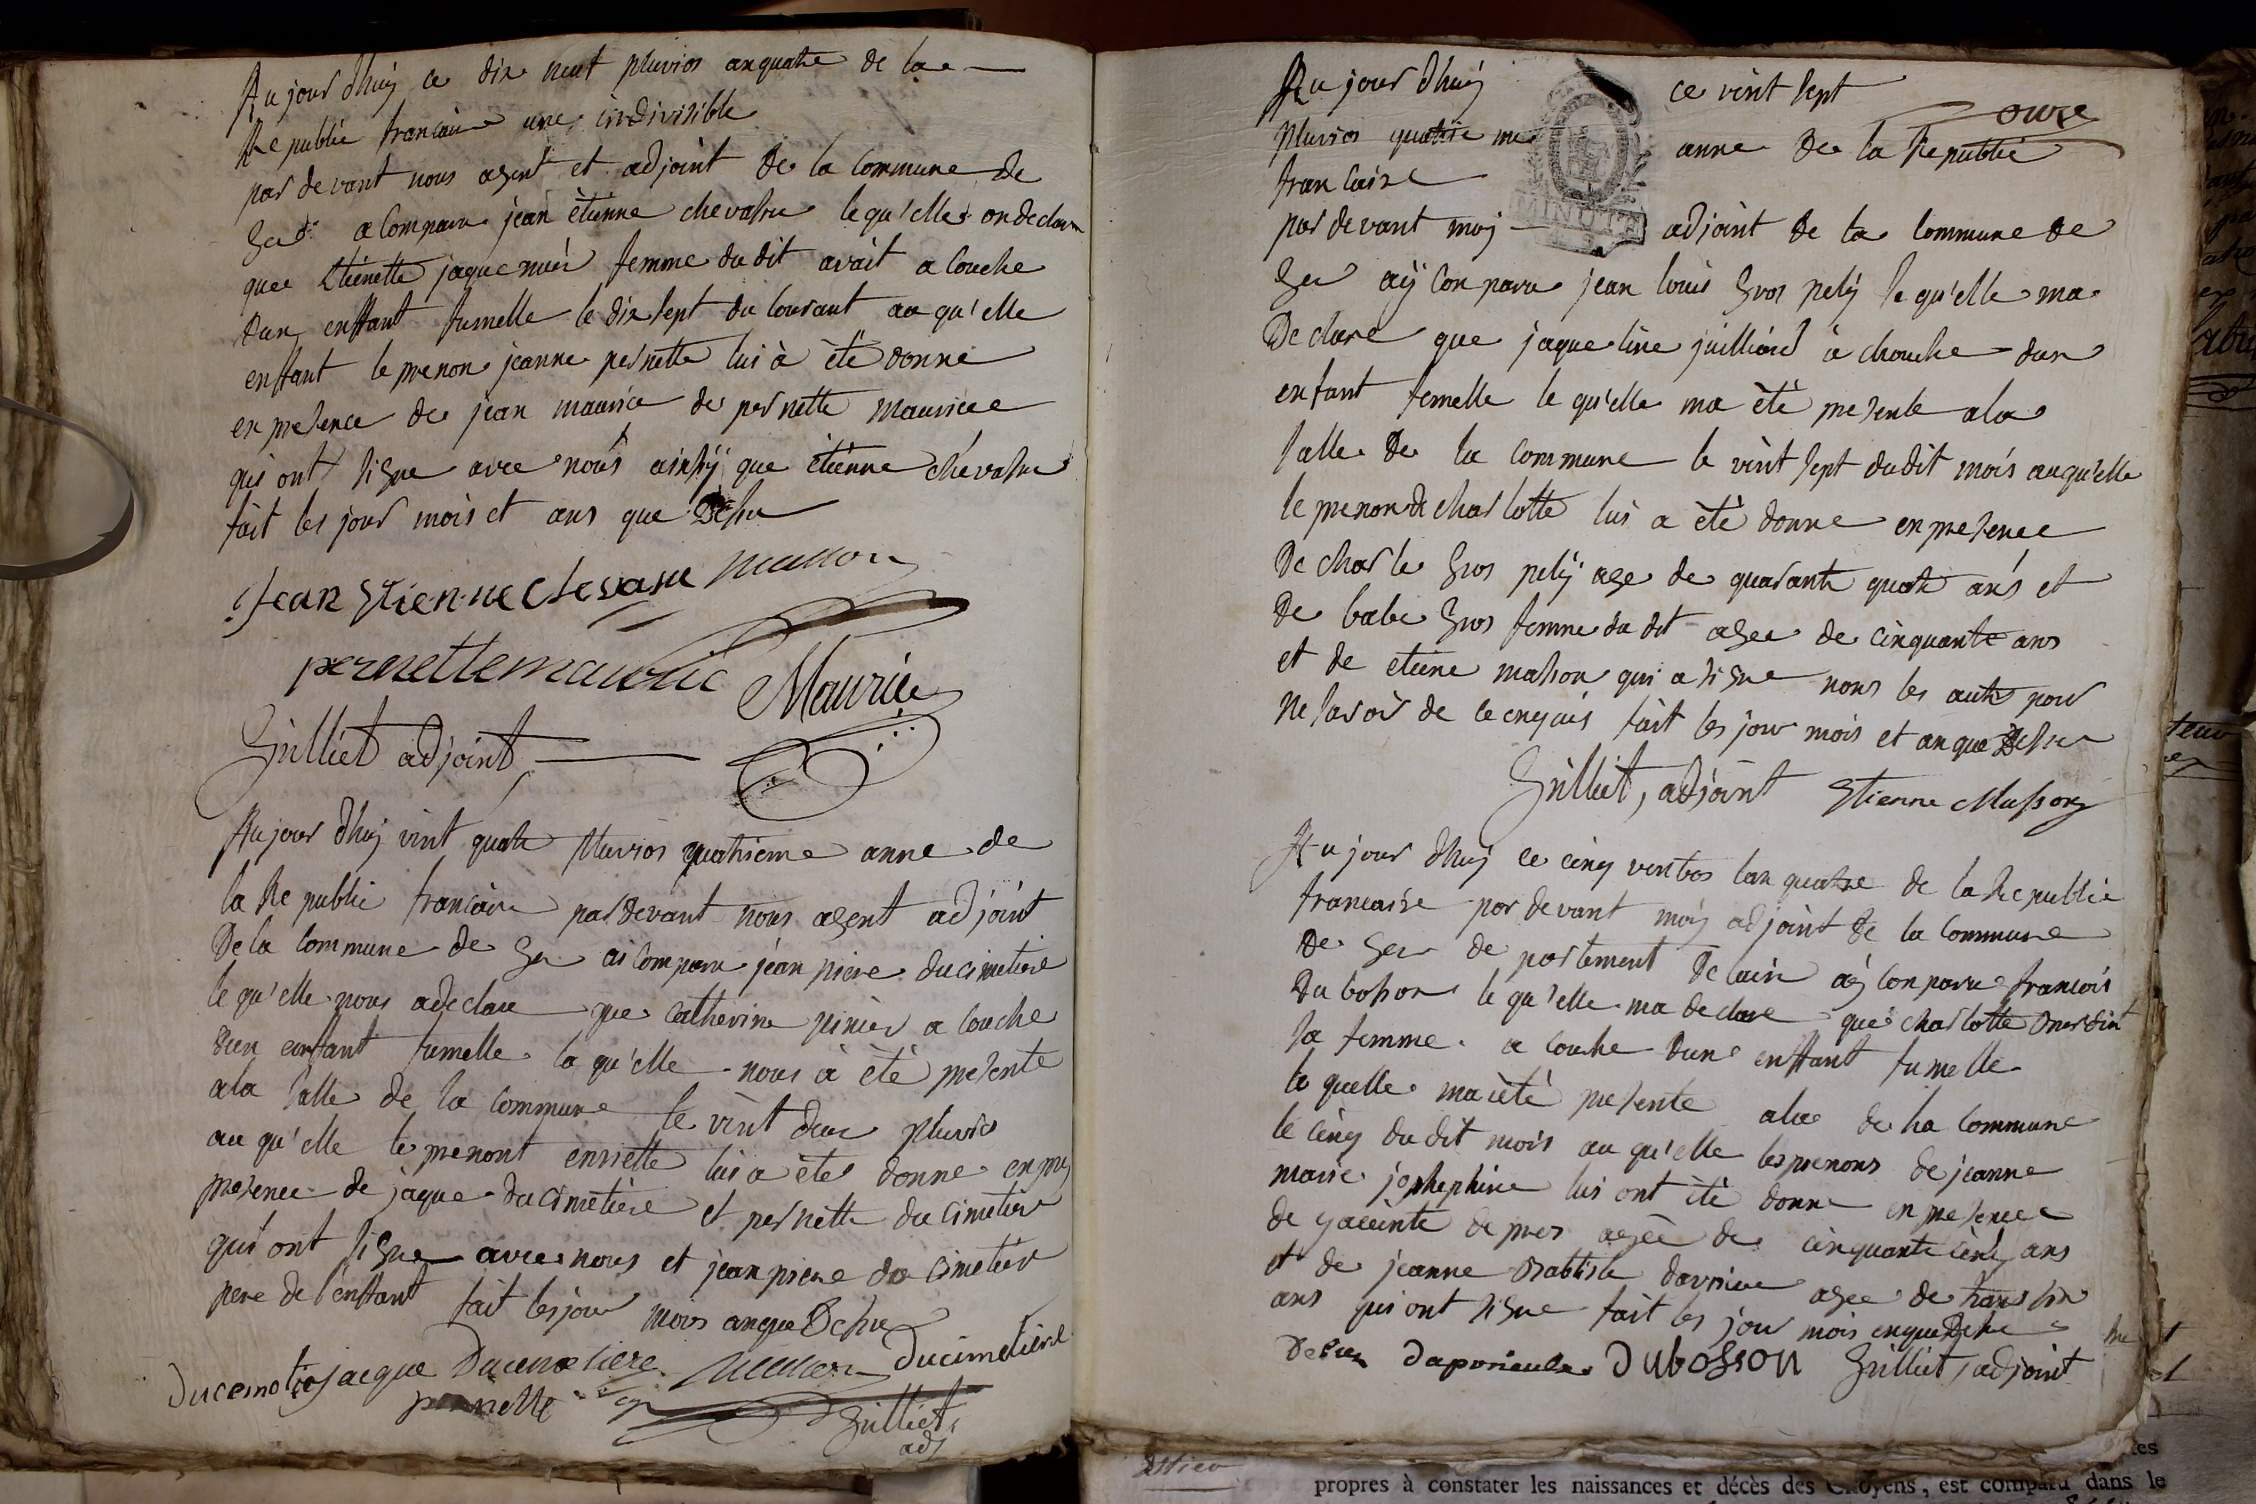 Aujourdhuy ce dix neuf pluvios anquatre de la
Republic francaise une indivisible
par devant nous agent et adjoint de la commune de
Gex a Comparu jean étienne chevassu lequ'elle on declare
que Etienette jaquemier femme dudit avait a Couche
dun enffant fumelle le dix sept du Courant auqu'elle
enffant le prenon jeanne pernette lui à été donné
en presence de jean maurice de pernette maurice
qui ont signe avec nous ainssy que étienne chevassu
fait les jour mois et ans que Dessu
Jean Etienne Chevassu masson
pernette maurice Maurice
Gilliet adjoint
Aujourdhuy vint quatre pluvios quatrieme anne de
la Republic francaise pardevant nous agent adjoint
De la Commune de Gex ai Comparu jean piere ducimetiere
lequ'elle nous adeclare que Catherine a Couche
dun enffant fumelle laqu'elle nous à été presente
ala salle de la Commune le vint deux pluvios
auqu'elle le prenont enriette lui a été donne en
presence de jaque ducimetiere et pernette ducimetiere
qui ont signe avec nous et jean piere du cimetier
pere de l'enffant fait les jour mois anque Dessu
jacque Ducimetiere masson Ducimetiere
pernette Gilliet
adj
Aujourdhuy ce vint sept
onze
pluvios quatrieme anne de la Republic
francaise
MINUTE
par devant moy adjoint de la Commune de
Gex ay Comparu jean louis Gros pely lequ'elle ma
Declare que jaqueline juilliard à chouche dun
enfant femelle lequ'elle ma été presente ala
salle de la Commune le vint sept dudit mois auqu'elle
le prenon de charlotte lui a été donne en presence
De charle Gros pely age de quarante quatre ans et
De babe Gros femme dudit agee de cinquante ans
et de etiene masson qui a signe nons les autre pour
ne savoir de ce enquis fait les jour mois et anque Dessu
Gilliet, adjoint Etienne Masson
Aujourdhuy ce cinq ventos lan quatre de la Republic
francaise par devant moy adjoint de la Commune
De Gex departement De lain ay Comparu francois
Dubosson lequ'elle ma declare que charlotte
sa femme a Couche dune enffant fumelle
laquelle ma été presente ala de la Commune
le cinq dudit mois auqu'elle les prenons de jeanne
marie josphephine lui ont été donne en presence
de agée de cinquante cinq ans
et de jeanne agee de
ans qui ont signe fait les jour mois enque Dessu
Dubosson Gilliet, adjoint
propres à constater les naissances et décès des Citoyens, est comparu dans le